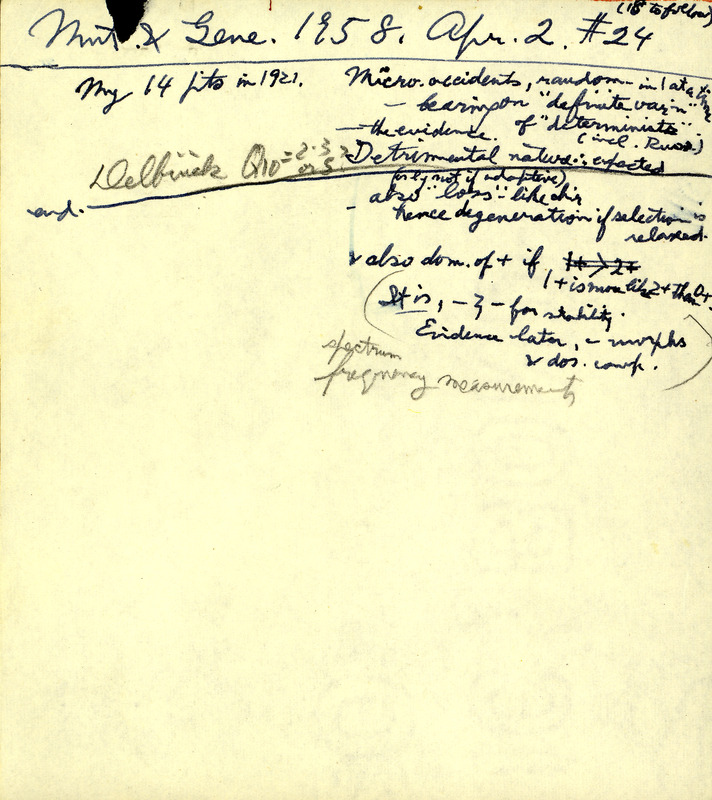 (18 to follow)
Mut. & Gene. 1958. Apr. 2. #24
My 14 pts in 1921.
Micro. accidents, random - in 1 at a time
- bearing on "definite var'n"
of "determinists".
- the evidence. (incl. Russ.)
Detrimental nature ∴ expected
Delbrück Q10 = 2-3 or 5?
(only not if adaptive)
also "loss"-like
end.
- hence degeneration if selection is
relaxed.
& also dom. of + if 1+ > 2+
1+ is more like 2+ than 0+
(It is, - - for stability.
Evidence later, - morphs
& dos. comp.)
spectrum
frequency measurements